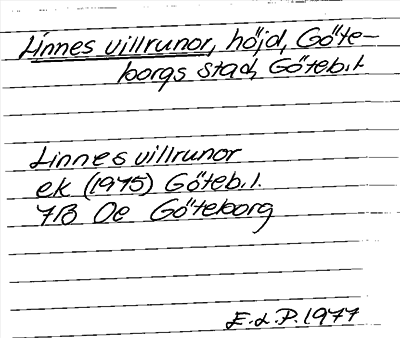 Linnes villrunor, höjd, Göte-
borgs stad, Göteb.l.
Linnes villrunor
ek (1975) Göteb.l.
7B Oe Göteborg
E.L.P. 1977